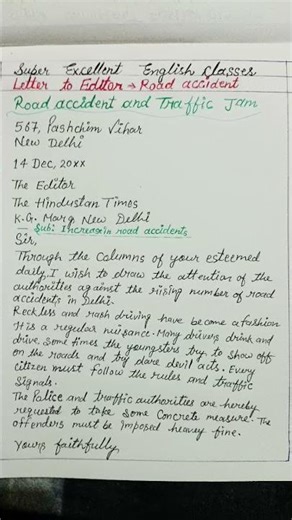 Super Excellent English Classes
Letter to Editor → Road accident
Road accident and Traffic Jam
567, Pashchim Vihar
New Delhi
14 Dec, 20xx
The Editor
The Hindustan Times
K.G. Marg New Delhi
— Sub: Increase in road accidents
Sir,
Through the columns of your esteemed
daily, I wish to draw the attention of the
authorities against the rising number of road
accidents in Delhi.
Reckless and rash driving have become a fashion
It is a regular nuisance. Many drivers drink and
drive some times the youngsters try to show off
on the roads and try dare devil acts. Every
citizen must follow the rules and traffic
Signals.
The Police and traffic authorities are hereby
requested to take some Concrete measure. The
offenders must be imposed heavy fine.
Yours faithfully,